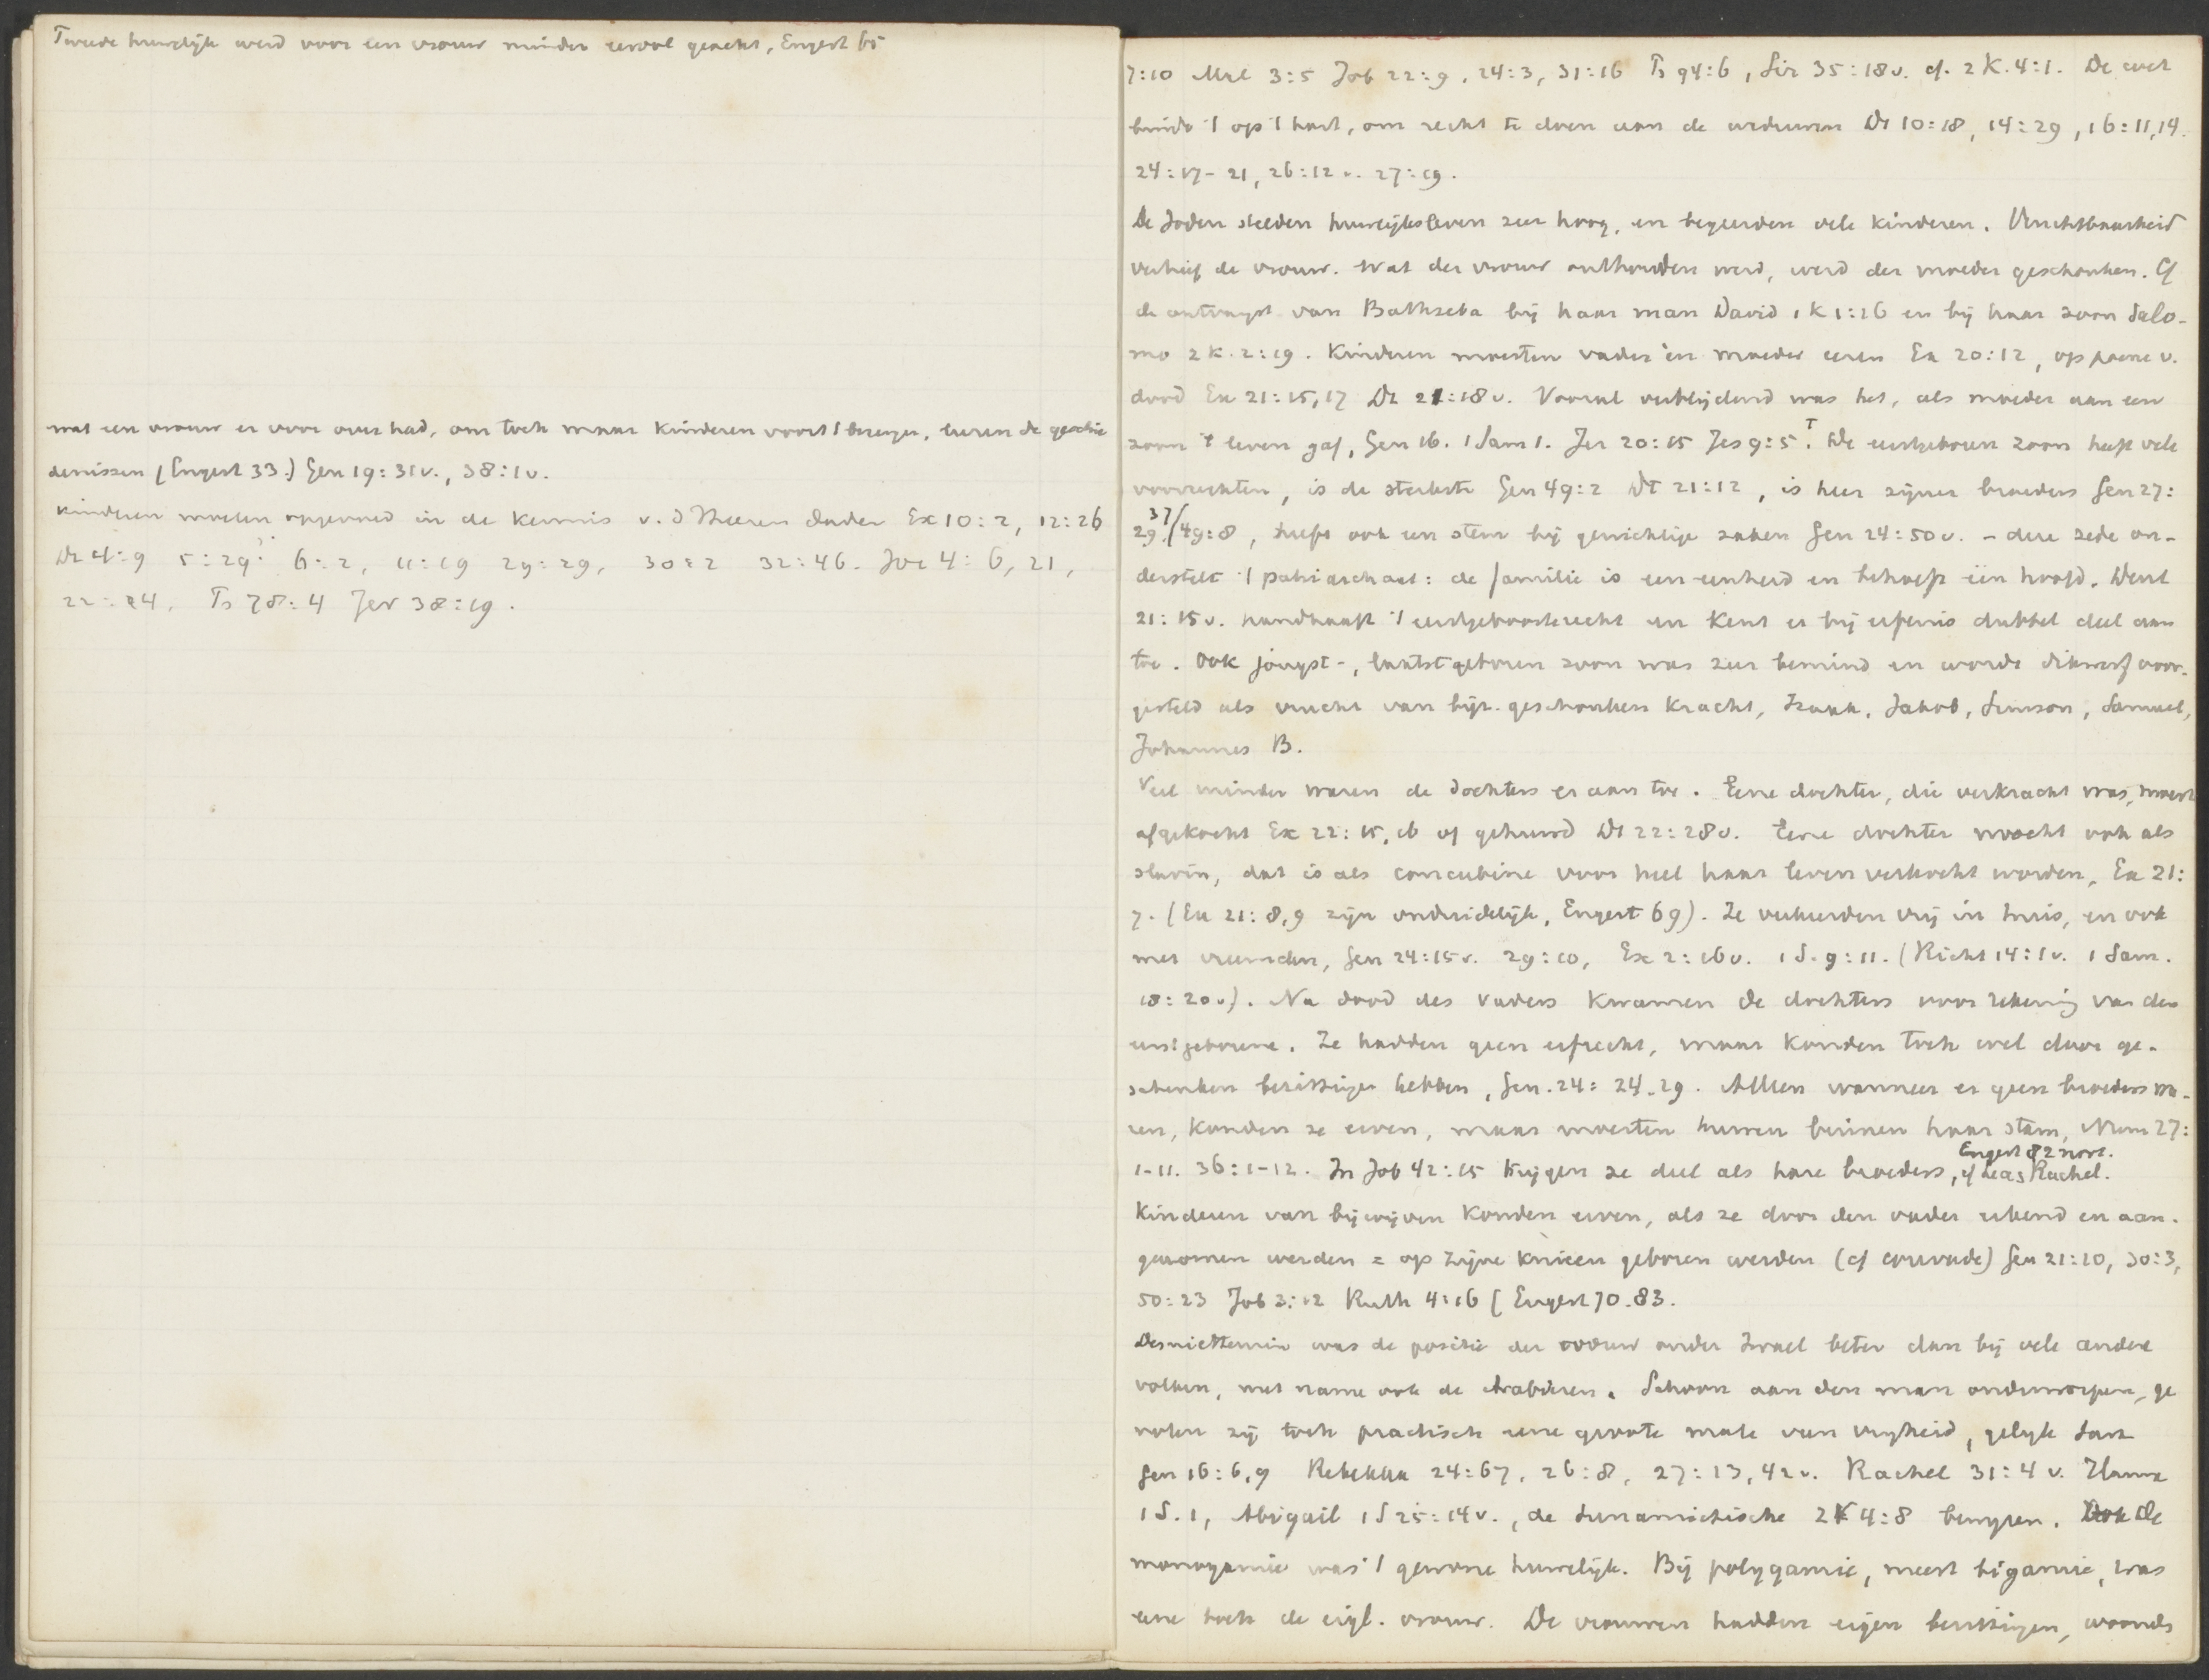 Tweede huwelijk werd voor een vrouw minder eervol geacht, Engert 65
wat een vrouw er voor over had, om toch maar kinderen voort t brengen, leeren de geschie
denissen (Engert 33.) Gen 19:31v., 38:1v.
kinderen moeten opgevoed in de kennis v. d Heeren daden Ex 10:2, 12:26
Dt 4:9 5:29? 6:2, 11:19 29:29, 30:2 32:46. Joz 4:6, 21,
22:24, Ps 78:4 Jes 38:19.
7:10 Mal 3:5 Job 22:9, 24:3, 31:16 Ps 94:6, Sir 35:18v. cf. 2 K. 4:1. De wet
bindt 't op 't hart, om recht te doen aan de weduwen Dt 10:18, 14:29, 16:11,14.
24:17-21, 26:12 v. 27:19.
De Joden stelden huwelijksleven zeer hoog, en begeerden vele kinderen. Vruchtbaarheid
verhief de vrouw. Wat der vrouw onthouden werd, werd der moeder geschonken. Cf
de ontvangst van Bathseba bij haar man David 1 K 1:16 en bij haar zoon Salo-
mo 2 K. 2:19. Kinderen moesten vader en moeder eeren Ex 20:12, op poene v.
dood Ex 21:15,17 Dt 21:18v. Vooral verblijdend was het, als moeder aan een
zoon 't leven gaf, Gen 16. 1 Sam 1. Jer 20:15 Jes 9:5. T De eerstgeboren zoon heeft vele
voorrechten, is de sterkste Gen 49:2 Dt 21:12, is heer zijner broeders Gen 27:
29. 37/49:8, heeft ook een stem bij gewichtige zaken Gen 24:50v. - deze zede on-
derstelt 't patriarchaat: de familie is een eenheid en behoeft één hoofd. Deut
21:15v. handhaaft 't eerstgeboorterecht en kent er bij erfenis dubbel deel aan
toe. Ook jongst-, laatstgeboren zoon was zeer bemind en wordt dikwerf voor-
gesteld als vrucht van bijz. geschonken kracht, Izaak, Jakob, Simson, Samuel,
Johannes B.
Veel minder waren de dochters er aan toe. Eene dochter, die verkracht was, moest
afgekocht Ex 22:15,16 of gehuwd Dt 22:28v. Eene dochter mocht ook als
slavin, dat is als concubine voor heel haar leven verkocht worden, Ex 21:
7. (Ex 21:8,9 zijn onduidelijk, Engert 69). Ze verkeerden vrij in huis, en ook
met vreemden, Gen 24:15v. 29:10, Ex 2:16v. 1 S. 9:11. (Richt 14:1v. 1 Sam.
18:20v). Na dood des vaders kwamen de dochters voor rekening van den
eerstgeborene. Ze hadden geen erfrecht, maar konden toch wel door ge-
schenken bezittingen hebben, Gen. 24:24.29. Alleen wanneer er geen broeders wa-
ren, konden ze erven, maar moesten huwen binnen haar stam, Num 27:
1-11. 36:1-12. In Job 42:15 krijgen ze deel als hare broeders, cf Lea, Rachel.
Engert 82 noot.
Kinderen van bijwijven konden erven, als ze door den vader erkend en aan-
genomen werden = op zijne knieen geboren werden (cf couvade) Gen 21:10, 30:3,
50:23 Job 3:12 Ruth 4:16 (Engert 70.83.
Desniettemin was de positie der vrouw onder Israel beter dan bij vele andere
volken, met name ook de Arabieren. Schoon aan den man onderworpen, ge
noten zij toch practisch eene groote mate van vrijheid, gelijk Sara
Gen 16:6,9 Rebekka 24:67, 26:8, 27:13,42v. Rachel 31:4 v. Hanna
1 S. 1, Abigail 1 S 25:14v., de Sunamietische 2 K 4:8 bewijzen. De
monogamie was 't gewone huwelijk. Bij polygamie, meest bigamie, was
eene toch de eigl. vrouw. De vrouwen hadden eigen bezittingen, woonde